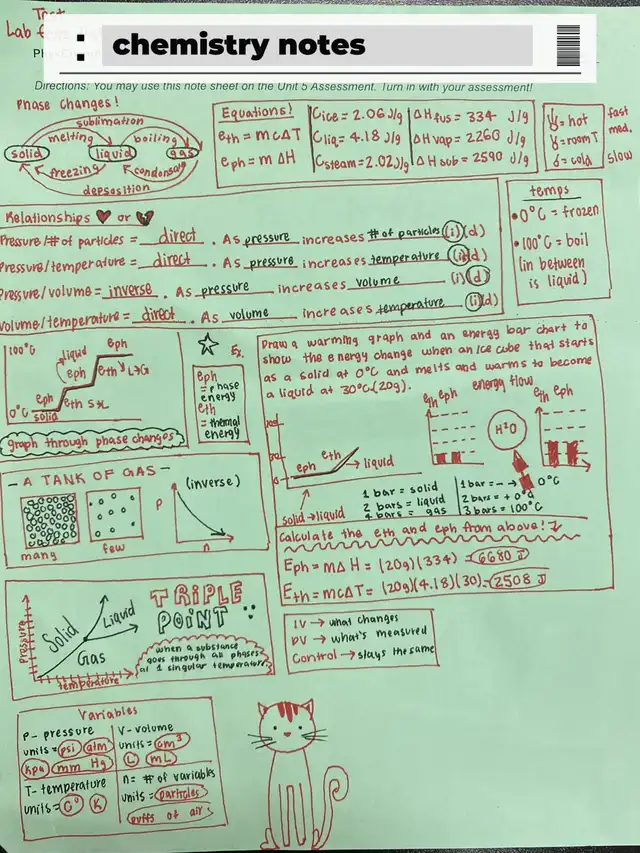 Test
Lab
: chemistry notes
Directions: You may use this note sheet on the Unit 5 Assessment. Turn in with your assessment!
Phase Changes!
sublimation
melting boiling
solid liquid gas
freezing condensation
deposition
Equations!
eth = mCΔT
eph = m ΔH
Cice = 2.06 J/g
Cliq = 4.18 J/g
Csteam = 2.02 J/g
ΔHfus = 334 J/g
ΔHvap = 2260 J/g
ΔHsub = 2590 J/g
= hot fast
= room T med.
= cold slow
temps
• 0°C = frozen
• 100°C = boil
(in between
is liquid)
Relationships ❤ or 💔
Pressure/# of particles = direct. As pressure increases # of particles (i)(d)
Pressure/temperature = direct. As pressure increases temperature (i)(d)
Pressure/volume = inverse. As pressure increases volume (i)(d)
Volume/temperature = direct. As volume increases temperature (i)(d)
100°C
eph
liquid
eph eth L→G
eph eth S→L
0°C solid
graph through phase changes
☆ Ex.
eph
= phase
energy
eth
= thermal
energy
Draw a warming graph and an energy bar chart to
show the energy change when an ice cube that starts
as a solid at 0°C and melts and warms to become
a liquid at 30°C (20g).
energy flow
eth eph
eth eph
H²O
30
0
eph eth → liquid
solid → liquid
1 bar = solid
2 bars = liquid
4 bars = gas
1 bar = - → 0°C
2 bars = + 0°C
3 bars = 100°C
Calculate the eth and eph from above!
Eph = mΔH = (20g)(334) = 6680 J
Eth = mcΔT = (20g)(4.18)(30) = 2508 J
- A TANK OF GAS -
many few
P (inverse)
n
Pressure
Solid Liquid
Gas
temperature
TRIPLE
POINT
when a substance
goes through all phases
at 1 singular temperature
IV → what changes
DV → what's measured
Control → stays the same
Variables
P- pressure
units = psi atm
kpa mm Hg
V- volume
units = cm³
L mL
T- temperature
units = C° K
n = # of variables
units = particles
puffs of air